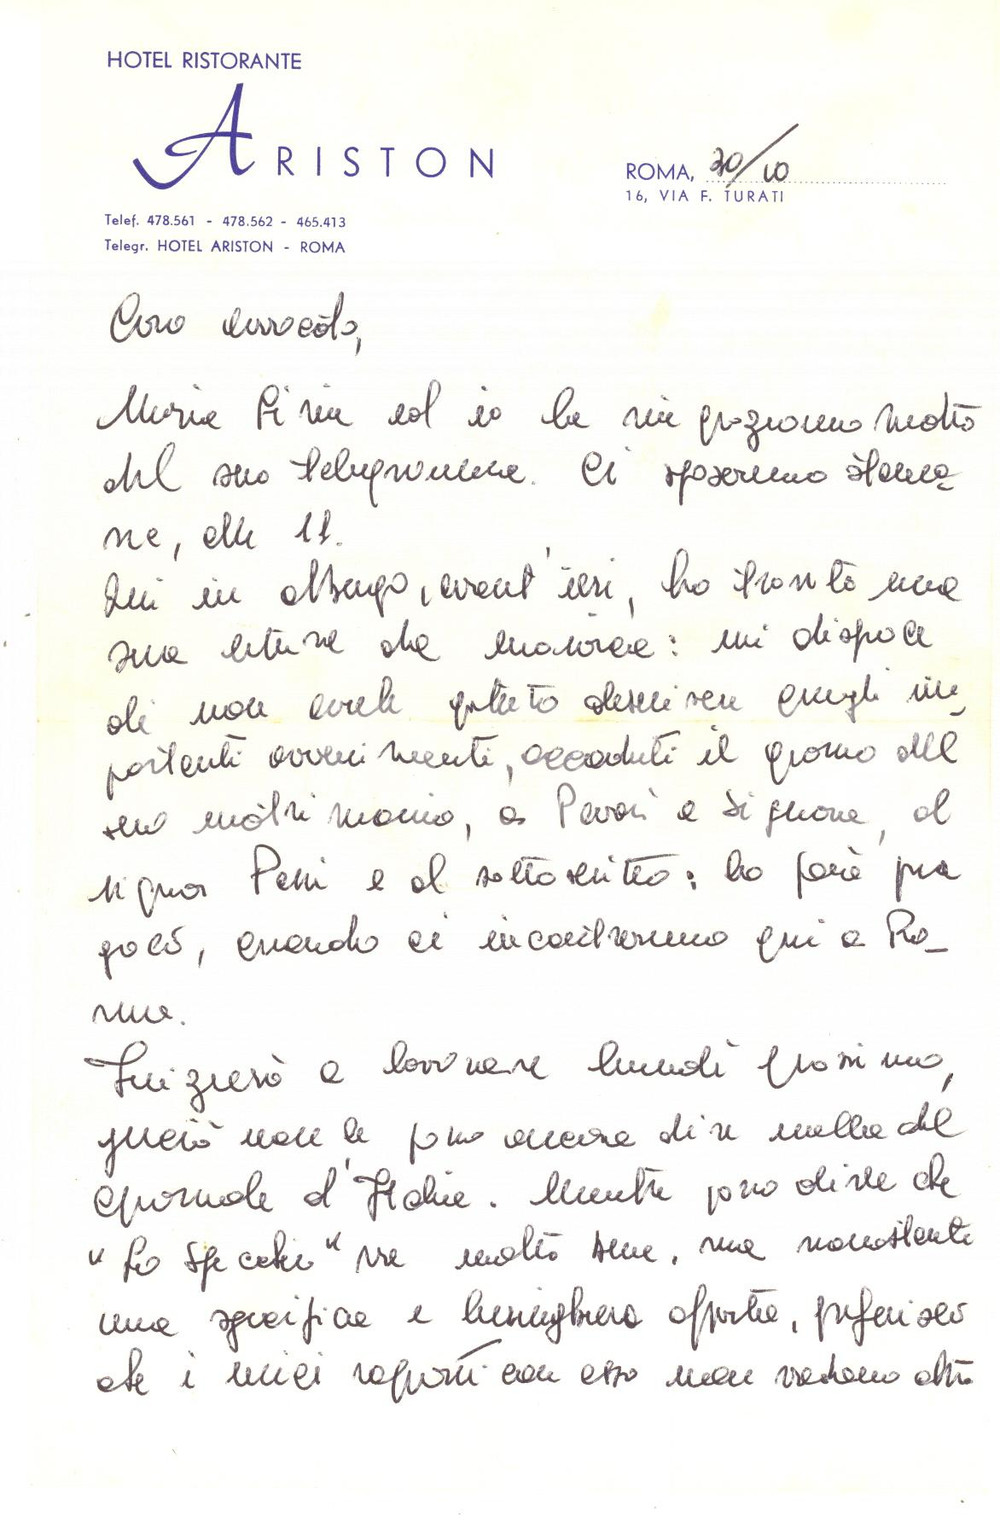 HOTEL RISTORANTE
ARISTON
ROMA, 20/10
16, VIA F. TURATI
Telef. 478.561 - 478.562 - 465.413
Telegr. HOTEL ARISTON - ROMA
Caro avvocato,
Maria Pia ed io la ringraziamo molto
del suo telegramma. Ci sposeremo stama-
ne, alle 11.
Qui in albergo, avant'ieri, ho trovato una
sua lettera da : mi dispiace
di non averle potuto descrivere quegli im-
portanti avvenimenti, accaduti il giorno del
suo matrimonio, a e signora, al
signor e al sottoscritto: lo farò fra
poco, quando ci incontreremo qui a Ro-
ma.
Inizierò a lavorare lunedì prossimo,
perciò non le posso ancora dire nulla del
Giornale d'Italia. Mentre posso dirle che
"Lo Specchio" va molto bene, ma nonostante
una specifica e lusinghiera offerta, preferisco
che i miei rapporti con esso non vadano oltre